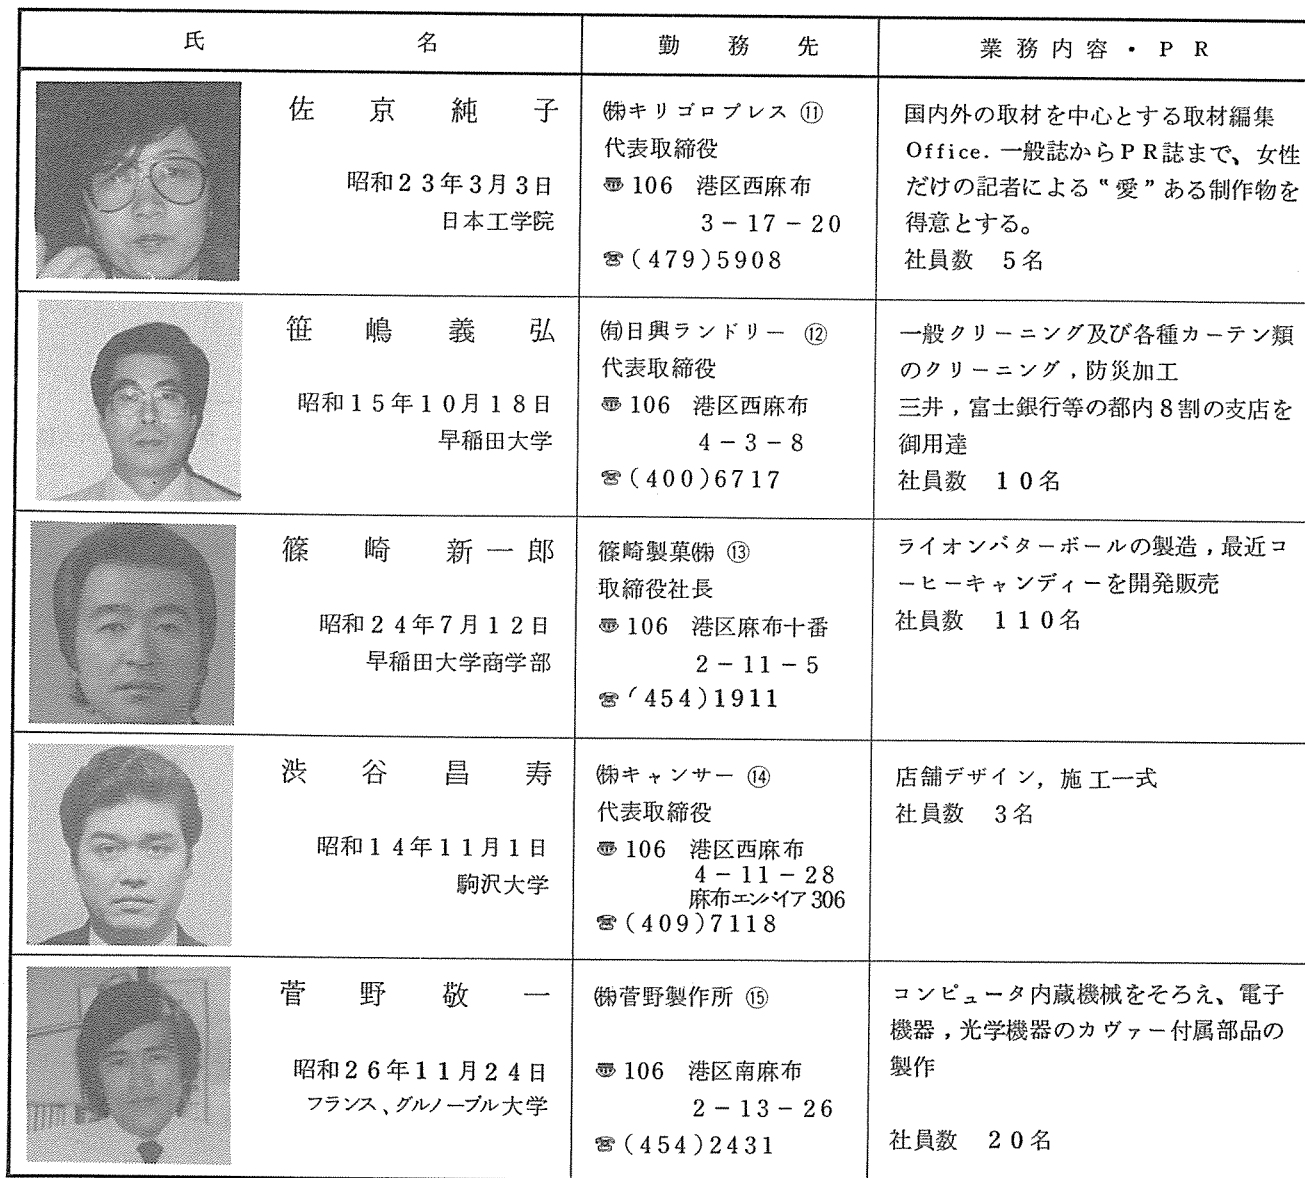 氏名 勤務先 業務内容・PR
佐京純子
昭和23年3月3日
日本工学院
㈱キリゴロプレス ⑪
代表取締役
〠106 港区西麻布
3－17－20
☎(479)5908
国内外の取材を中心とする取材編集
Office. 一般誌からPR誌まで、女性
だけの記者による〝愛〟ある制作物を
得意とする。
社員数 5名
笹嶋義弘
昭和15年10月18日
早稲田大学
㈲日興ランドリー ⑫
代表取締役
〠106 港区西麻布
4－3－8
☎(400)6717
一般クリーニング及び各種カーテン類
のクリーニング，防災加工
三井，富士銀行等の都内8割の支店を
御用達
社員数 10名
篠崎新一郎
昭和24年7月12日
早稲田大学商学部
篠崎製菓㈱ ⑬
取締役社長
〠106 港区麻布十番
2－11－5
☎(454)1911
ライオンバターボールの製造，最近コ
ーヒーキャンディーを開発販売
社員数 110名
渋谷昌寿
昭和14年11月1日
駒沢大学
㈱キャンサー ⑭
代表取締役
〠106 港区西麻布
4－11－28
麻布エンパイア306
☎(409)7118
店舗デザイン，施工一式
社員数 3名
菅野敬一
昭和26年11月24日
フランス、グルノーブル大学
㈱菅野製作所 ⑮
〠106 港区南麻布
2－13－26
☎(454)2431
コンピュータ内蔵機械をそろえ、電子
機器，光学機器のカヴァー付属部品の
製作
社員数 20名